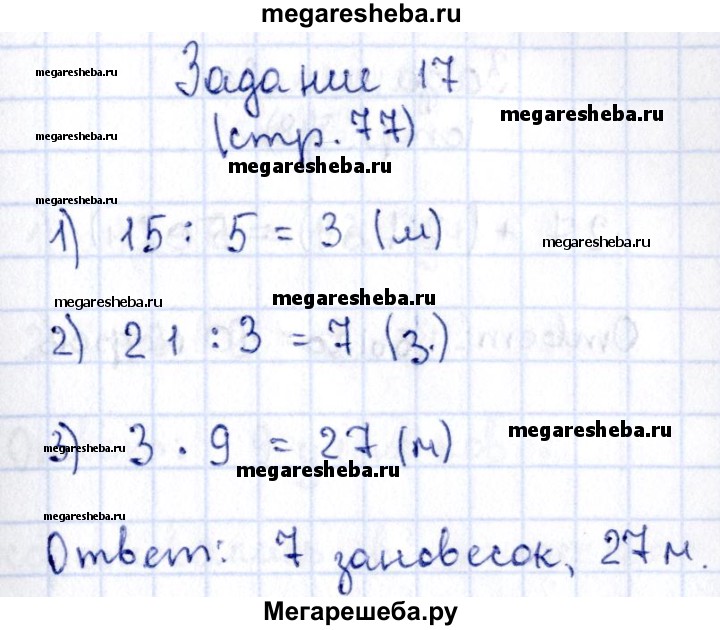 megaresheba.ru
Задание 17
megaresheba.ru
megaresheba.ru
megaresheba.ru
(стр. 77)
megaresheba.ru
megaresheba.ru
1) 15 : 5 = 3 (м)
megaresheba.ru
megaresheba.ru
megaresheba.ru
2) 21 : 3 = 7 (з.)
3) 3 · 9 = 27 (м)
megaresheba.ru
megaresheba.ru
megaresheba.ru
megaresheba.ru
Ответ: 7 зановесок, 27 м.
Мегарешеба.ру